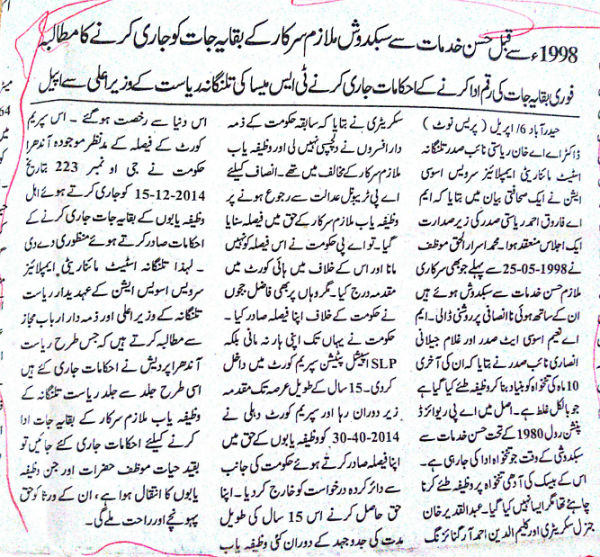 1998ء سے قبل حسن خدمات سے سبکدوش ملازم سرکار کے بقایہ جات کو جاری کرنے کا مطالبہ
فوری بقایہ جات کی رقم ادا کرنے کے احکامات جاری کرنے ٹی ایس میسا کی تلنگانہ ریاست کے وزیر اعلی سے اپیل
حیدرآباد 6/ اپریل (پریس نوٹ)
ڈاکٹر اے اے خان ریاستی نائب صدر تلنگانہ
اسٹیٹ مائناریٹی ایمپلائیز سرویس اسوسی
ایشن نے ایک صحافتی بیان میں بتایا کہ ایم
اے فاروق احمد ریاستی صدر کی زیر صدارت
ایک اجلاس منعقد ہوا۔ محمد اسرار الحق موظف
نے 25-05-1998 سے پہلے جو بھی سرکاری
ملازم حسن خدمات سے سبکدوش ہوئے ہیں
ان کے ساتھ ہوئی ناانصافی پر روشنی ڈالی۔ ایم
اے نعیم اسوسی ایٹ صدر اور غلام جیلانی
انصاری نائب صدر نے بتایا کہ ان کی آخری
10 ماہ کی تنخواہ کو بنیاد بنا کر وظیفہ طئے کیا گیا ہے
جو بالکل غلط ہے۔ اصل میں اے پی ریوائزڈ
پنشن رول 1980 کے تحت حسن خدمات سے
سبکدوشی کے وقت جو تنخواہ ادا کی جارہی ہے۔
اس کے بیسک کی آدھی تنخواہ پر وظیفہ طئے کرنا
چاہئے تھا مگر ایسا نہیں کیا گیا۔ عبدالقدیر خان
جنرل سکریٹری اور کلیم الدین احمد آرگنائزنگ
سکریٹری نے بتایا کہ سابقہ حکومت کے ذمہ
دار افسروں نے دلچسپی نہیں لی اور وظیفہ یاب
ملازم سرکار کے مخالف میں تھے۔ انصاف کیلئے
اے پی ٹریبونل عدالت سے رجوع ہونے پر
وظیفہ یاب ملازم سرکار کے حق میں فیصلہ سنایا
گیا۔ تو اے پی حکومت نے اس فیصلہ کو نہیں
مانا اور اس کے خلاف میں ہائی کورٹ میں
مقدمہ درج کیا۔ مگر وہاں پر بھی فاضل ججوں
نے حکومت کے خلاف اپنا فیصلہ صادر کیا۔
حکومت نے یہاں تک اپنی ہار نہ مانی بلکہ
SLP اسپیشل پٹیشن سپریم کورٹ میں داخل
کردی۔ 15 سال کے طویل عرصہ تک مقدمہ
زیر دوران رہا اور سپریم کورٹ دہلی نے
30-40-2014 کو وظیفہ یابوں کے حق میں
اپنا فیصلہ صادر کرتے ہوئے حکومت کی جانب
سے دائر کردہ درخواست کو خارج کردیا۔ اپنا
حق حاصل کرنے میں اس 15 سال کی طویل
مدت کی جدوجہد کے دوران کئی وظیفہ یاب
اس دنیا سے رخصت ہو گئے۔ اس سپریم
کورٹ کے فیصلہ کے مدنظر موجودہ آندھرا
حکومت نے جی او نمبر 223 بتاریخ
15-12-2014 کو جاری کرتے ہوئے اہل
وظیفہ یابوں کے بقایہ جات جاری کرنے کے
احکامات صادر کرتے ہوئے منظوری دے دی
۔ لہذا تلنگانہ اسٹیٹ مائناریٹی ایمپلائیز
سرویس اسویس ایشن کے عہدیدار ریاست
تلنگانہ کے وزیر اعلی اور ذمہ دار ارباب مجاز
سے مطالبہ کرتے ہیں کہ جس طرح ریاست
آندھرا پردیش نے احکامات جاری کئے ہیں
اسی طرح جلد سے جلد ریاست تلنگانہ کے
وظیفہ یاب ملازم سرکار کے بقایہ جات ادا
کرنے کیلئے احکامات جاری کئے جائیں تو
بقید حیات موظف حضرات اور جن وظیفہ
یابوں کا انتقال ہوا ہے، ان کے ورثا کو حق
پہونچے اور راحت ملے گی۔